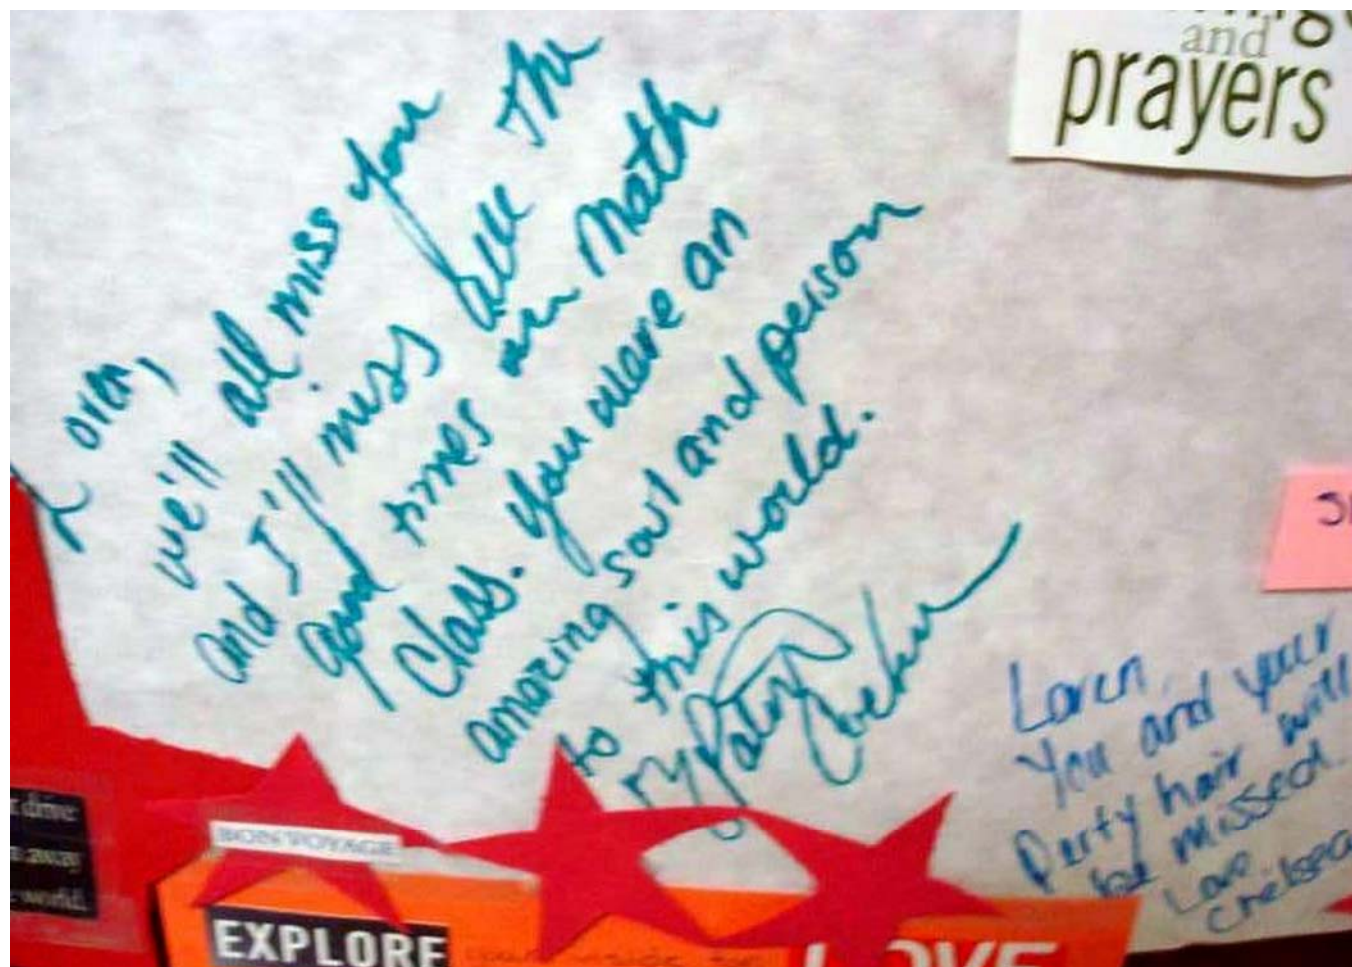 and
prayers
Loren,
we'll all miss you
and I'll miss all the
good times in Math
Class. you were an
amazing soul and person
to this world.
Loren,
You and your
Party hair will
be missed.
Love
Chelsea
drive
away
world.
BON VOYAGE
EXPLORE
LOVE